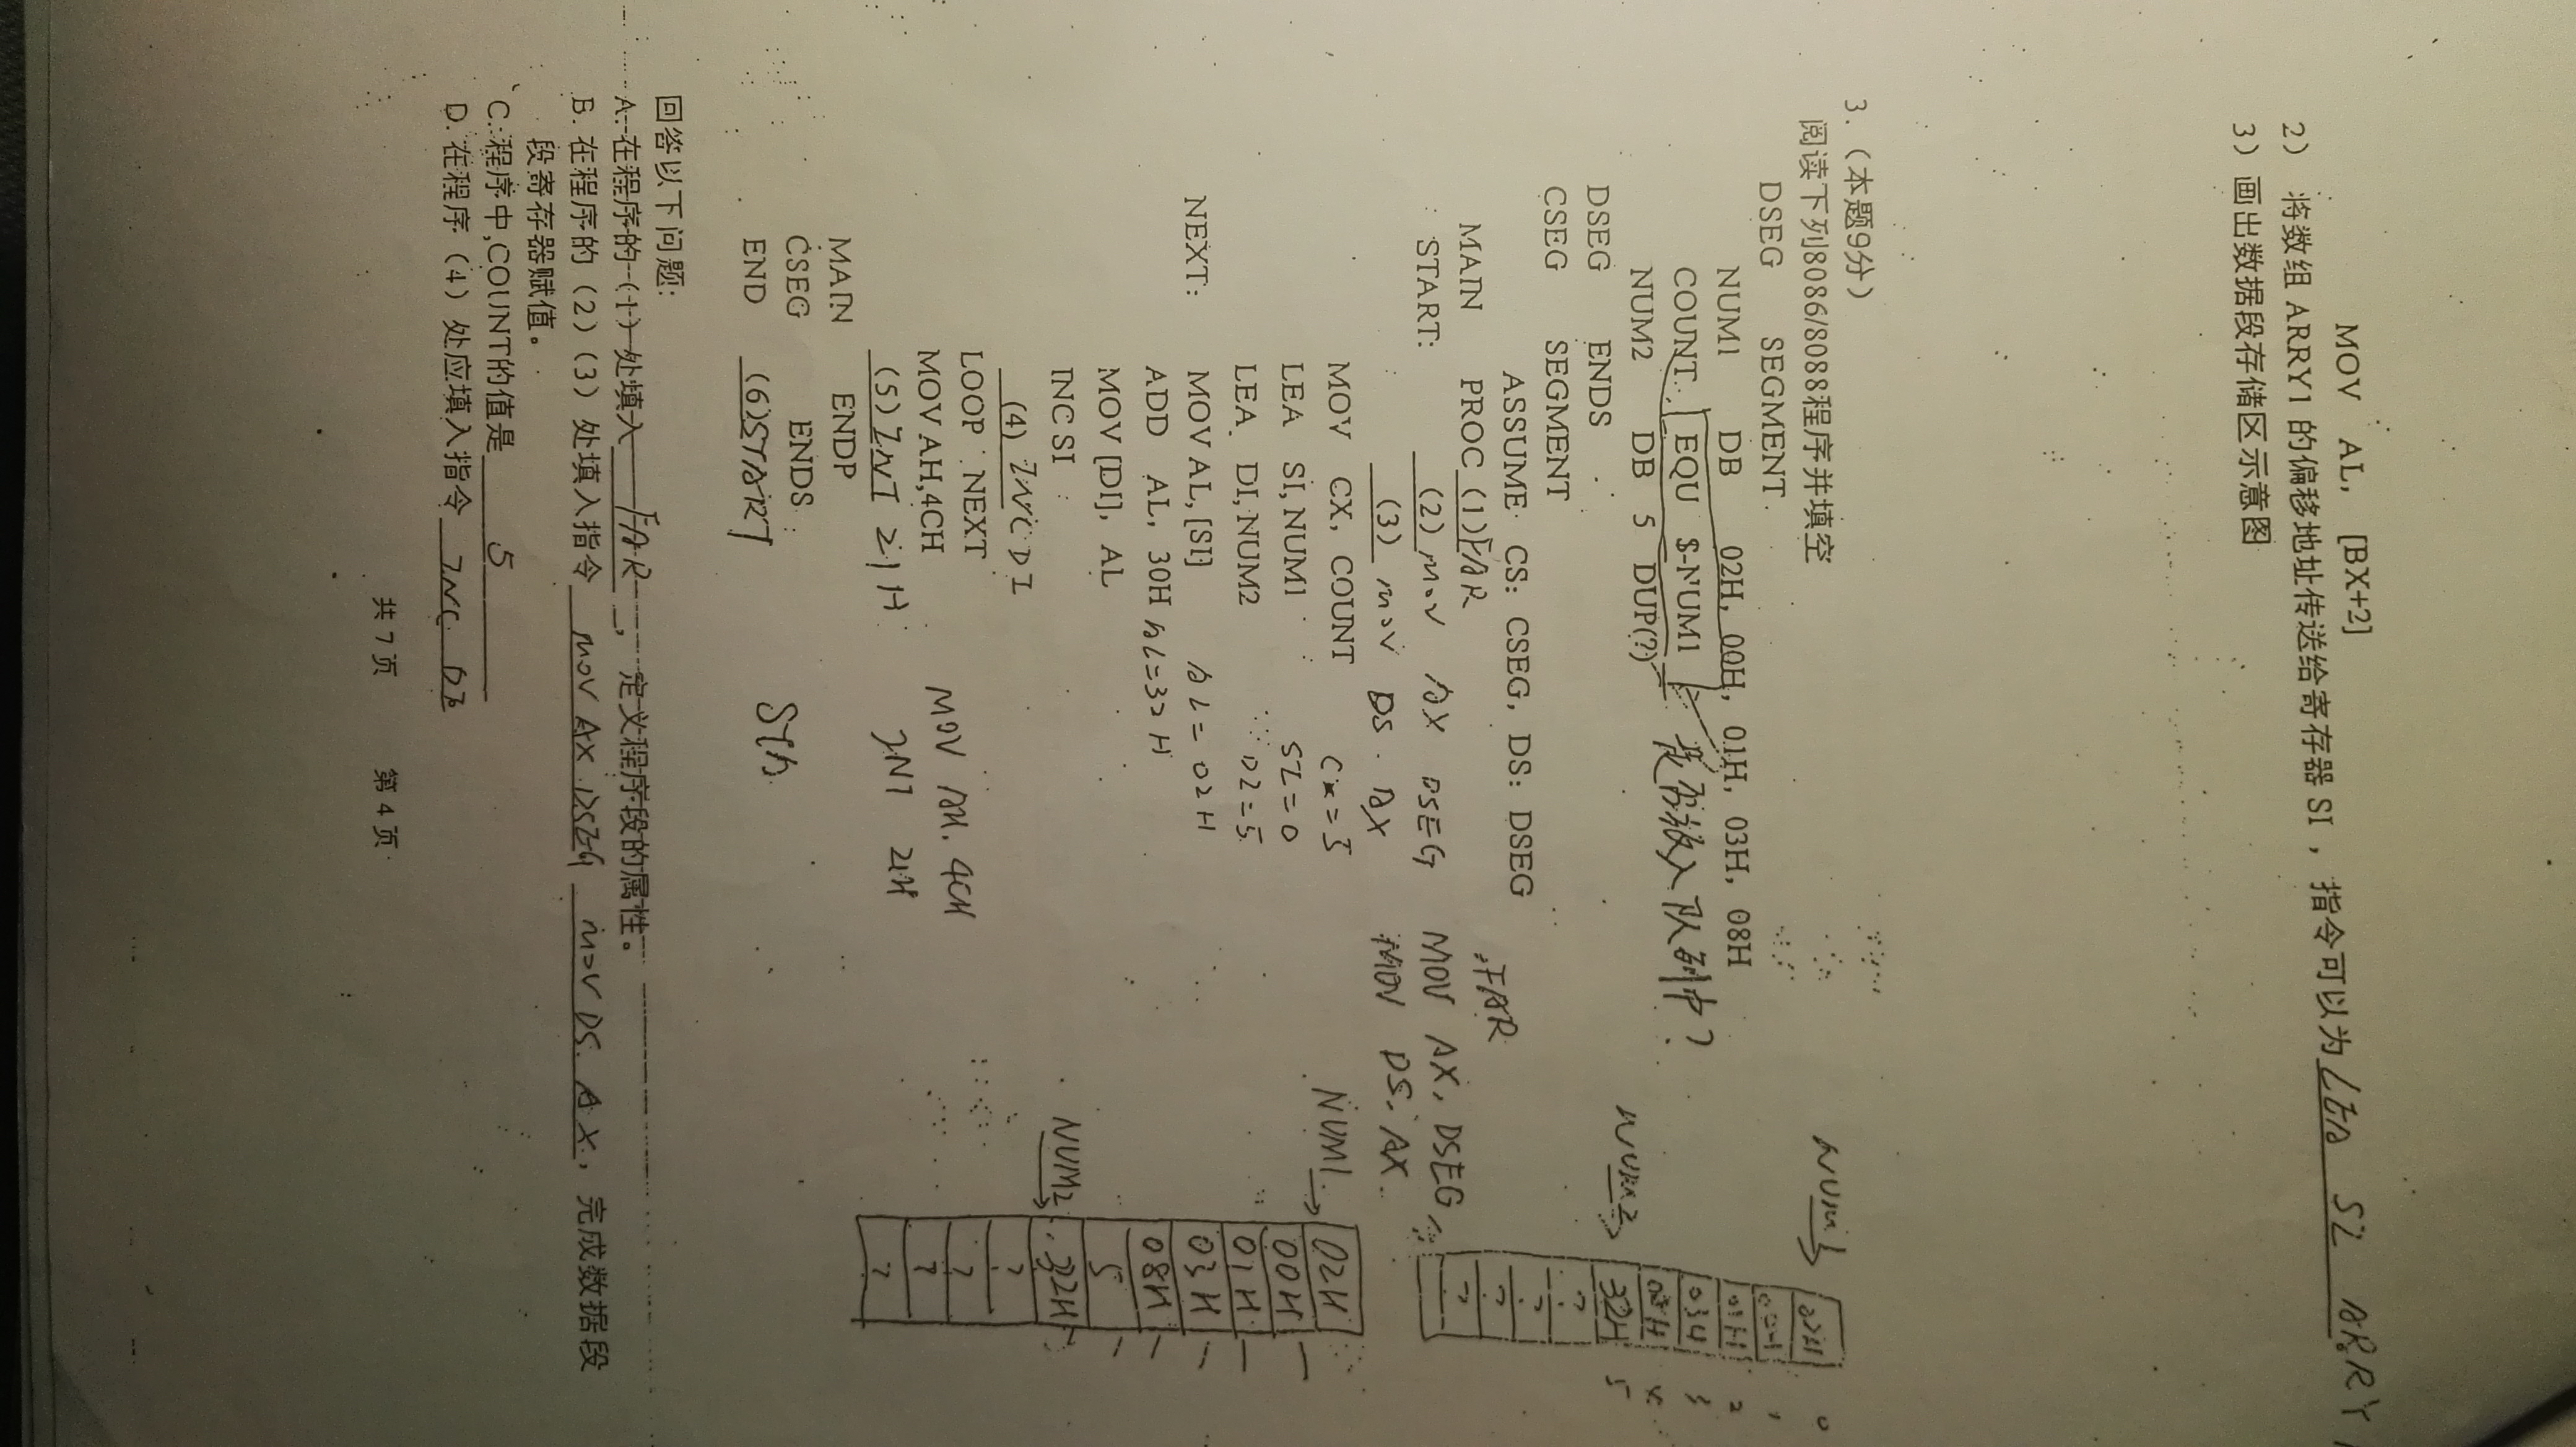 MOV AL, [BX+2]
2） 将数组 ARRY1 的偏移地址传送给寄存器 SI ，指令可以为 LEA SI ARRY
3）画出数据段存储区示意图
3.（本题9分）
阅读下列8086/8088程序并填空
DSEG SEGMENT
NUM1 DB 02H, 00H, 01H, 03H, 08H
COUNT EQU $-NUM1 是否放入队列中?
NUM2 DB 5 DUP(?)
DSEG ENDS
CSEG SEGMENT
ASSUME CS: CSEG, DS: DSEG
MAIN PROC (1)FAR FAR
START: (2) mov AX DSEG MOV AX, DSEG
(3) mov DS. AX MOV DS, AX
MOV CX, COUNT CX=5
LEA SI, NUM1 SI=0
LEA DI, NUM2 DI=5
NEXT: MOV AL, [SI] AL=02H
ADD AL, 30H AL=32H
MOV [DI], AL
INC SI
(4) INC DI
LOOP NEXT
MOV AH,4CH MOV AH. 4CH
(5) INT 21H INT 21H
MAIN ENDP
CSEG ENDS
END (6)START STA
NUM1
02H
00H
01H
03H
08H
NUM2
32H
?
?
?
?
0
1
2
3
4
5
NUM1
02H
00H
01H
03H
08H
5
NUM2
32H
?
?
?
?
回答以下问题:
A. 在程序的（1）处填入 FAR ，定义程序段的属性。
B. 在程序的（2）（3）处填入指令 mov AX DSEG mov DS. AX ，完成数据段
段寄存器赋值。
C. 程序中,COUNT的值是 5
D. 在程序（4）处应填入指令 INC DI
共 7 页 第 4 页